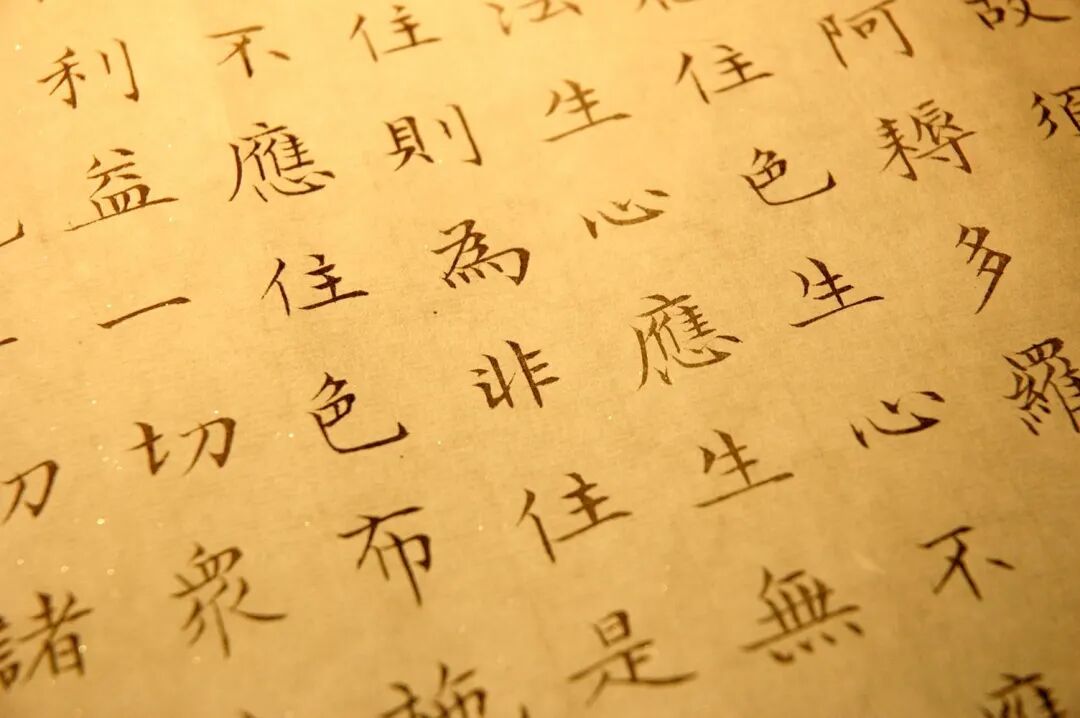 故須
阿耨多羅
應住色生心不應
法生心應生無
住則為非住是
不應住色布施
利益一切眾
一切諸